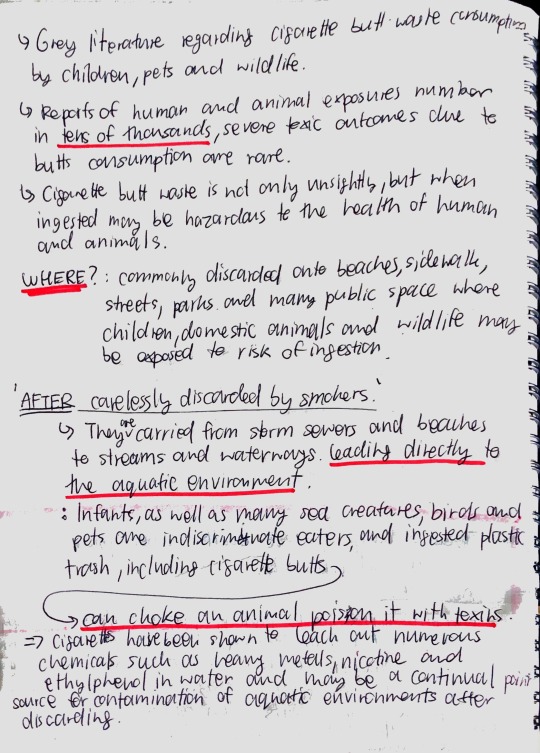 ↳ Grey literature regarding cigarette butt waste consumption
by children, pets and wildlife.
↳ Reports of human and animal exposures number
in tens of thousands, severe toxic outcomes due to
butts consumption are rare.
↳ Cigarette butt waste is not only unsightly, but when
ingested may be hazardous to the health of human
and animals.
WHERE? : commonly discarded onto beaches, sidewalk,
streets, parks and many public space where
children, domestic animals and wildlife may
be exposed to risk of ingestion.
'AFTER carelessly discarded by smokers.'
↳ They are carried from storm sewers and beaches
to streams and waterways. leading directly to
the aquatic environment.
: Infants, as well as many sea creatures, birds and
pets are indiscriminate eaters, and ingested plastic
trash, including cigarette butts
→ can choke an animal poison it with toxins.
⇒ Cigarettes have been shown to leach out numerous
chemicals such as heavy metals, nicotine and
ethylphenol in water and may be a continual point
source for contamination of aquatic environments after
discarding.